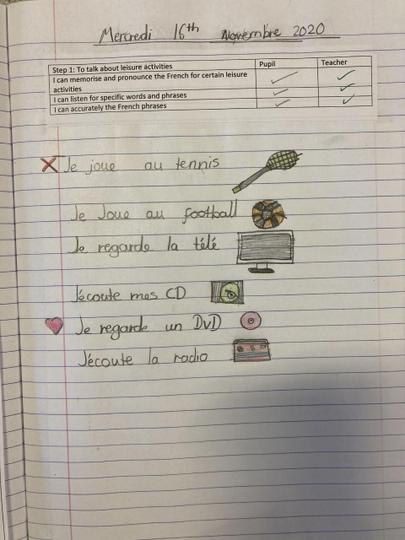 Mercredi 16th Novembre 2020
Step 1: To talk about leisure activities Pupil Teacher
I can memorise and pronounce the French for certain leisure
activities
I can listen for specific words and phrases
I can accurately the French phrases
Je joue au tennis
Je Joue au football
Je regarde la télé
J'écoute mes CD
Je regarde un DvD
J'écoute la radio